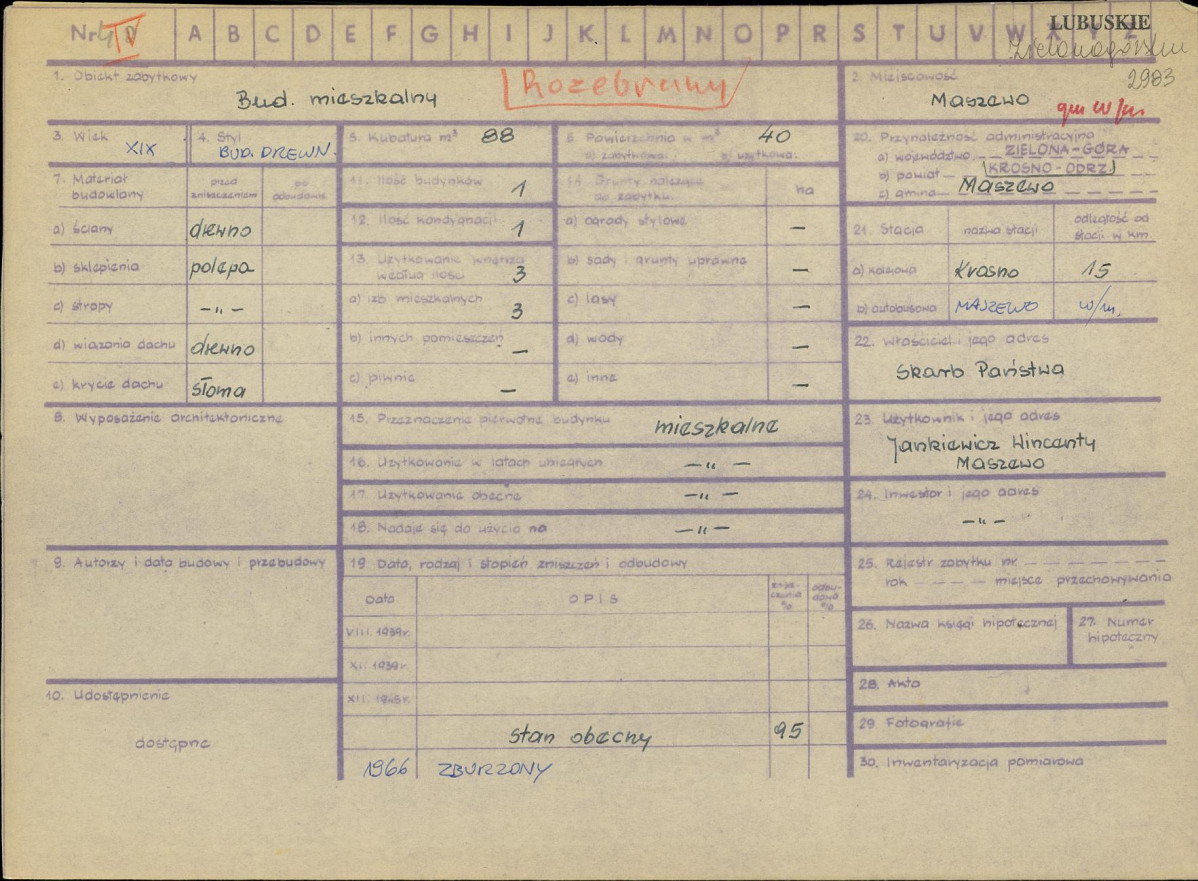 Nr IV A B C D E F G H I J K L M N O P R S T U V W X Y Z
LUBUSKIE
2903
1. Obiekt zabytkowy
Bud. mieszkalny
Rozebrany
2. Miejscowość
Maszewo
gm w/m
3. Wiek
XIX
4. Styl
BUD. DREWN.
5. Kubatura m³ 88
6. Powierzchnia w m² 40
a) zabytkowa: b) użytkowa:
20. Przynależność administracyjna
a) województwo ZIELONA-GÓRA
b) powiat KROSNO-ODRZ.
c) gmina Maszewo
7. Materiał budowlany
przed zniszczeniem
po odbudowie
a) ściany drewno
b) sklepienia polepa
c) stropy —„—
d) wiązania dachu drewno
e) krycie dachu słoma
11. Ilość budynków 1
12. Ilość kondygnacji 1
13. Użytkowanie wnętrza
według ilości 3
a) izb mieszkalnych 3
b) innych pomieszczeń —
c) piwnic —
14. Grunty należące
do zabytku:
ha
a) ogrody stylowe —
b) sady i grunty uprawne —
c) lasy —
d) wody —
e) inne —
21. Stacja
nazwa stacji
odległość od
stacji w km.
a) kolejowa Krosno 15
b) autobusowa MASZEWO w/m.
22. Właściciel i jego adres
Skarb Państwa
8. Wyposażenie architektoniczne
15. Przeznaczenie pierwotne budynku mieszkalne
16. Użytkowanie w latach ubiegłych —„—
17. Użytkowanie obecne —„—
18. Nadaje się do użycia na —„—
23. Użytkownik i jego adres
Jankiewicz Wincenty
Maszewo
24. Inwestor i jego adres
—„—
9. Autorzy i data budowy i przebudowy
19. Data, rodzaj i stopień zniszczeń i odbudowy
Data
OPIS
znisz-
czenia
%
odbu-
dowa
%
VIII. 1939r.
XI. 1939r.
XII. 1945r.
stan obecny 95
1966 ZBURZONY
25. Rejestr zabytku nr.
rok miejsce przechowywania
26. Nazwa księgi hipotecznej
27. Numer
hipoteczny
28. Akta
29 Fotografie
30. Inwentaryzacja pomiarowa
10. Udostępnienie
dostępne